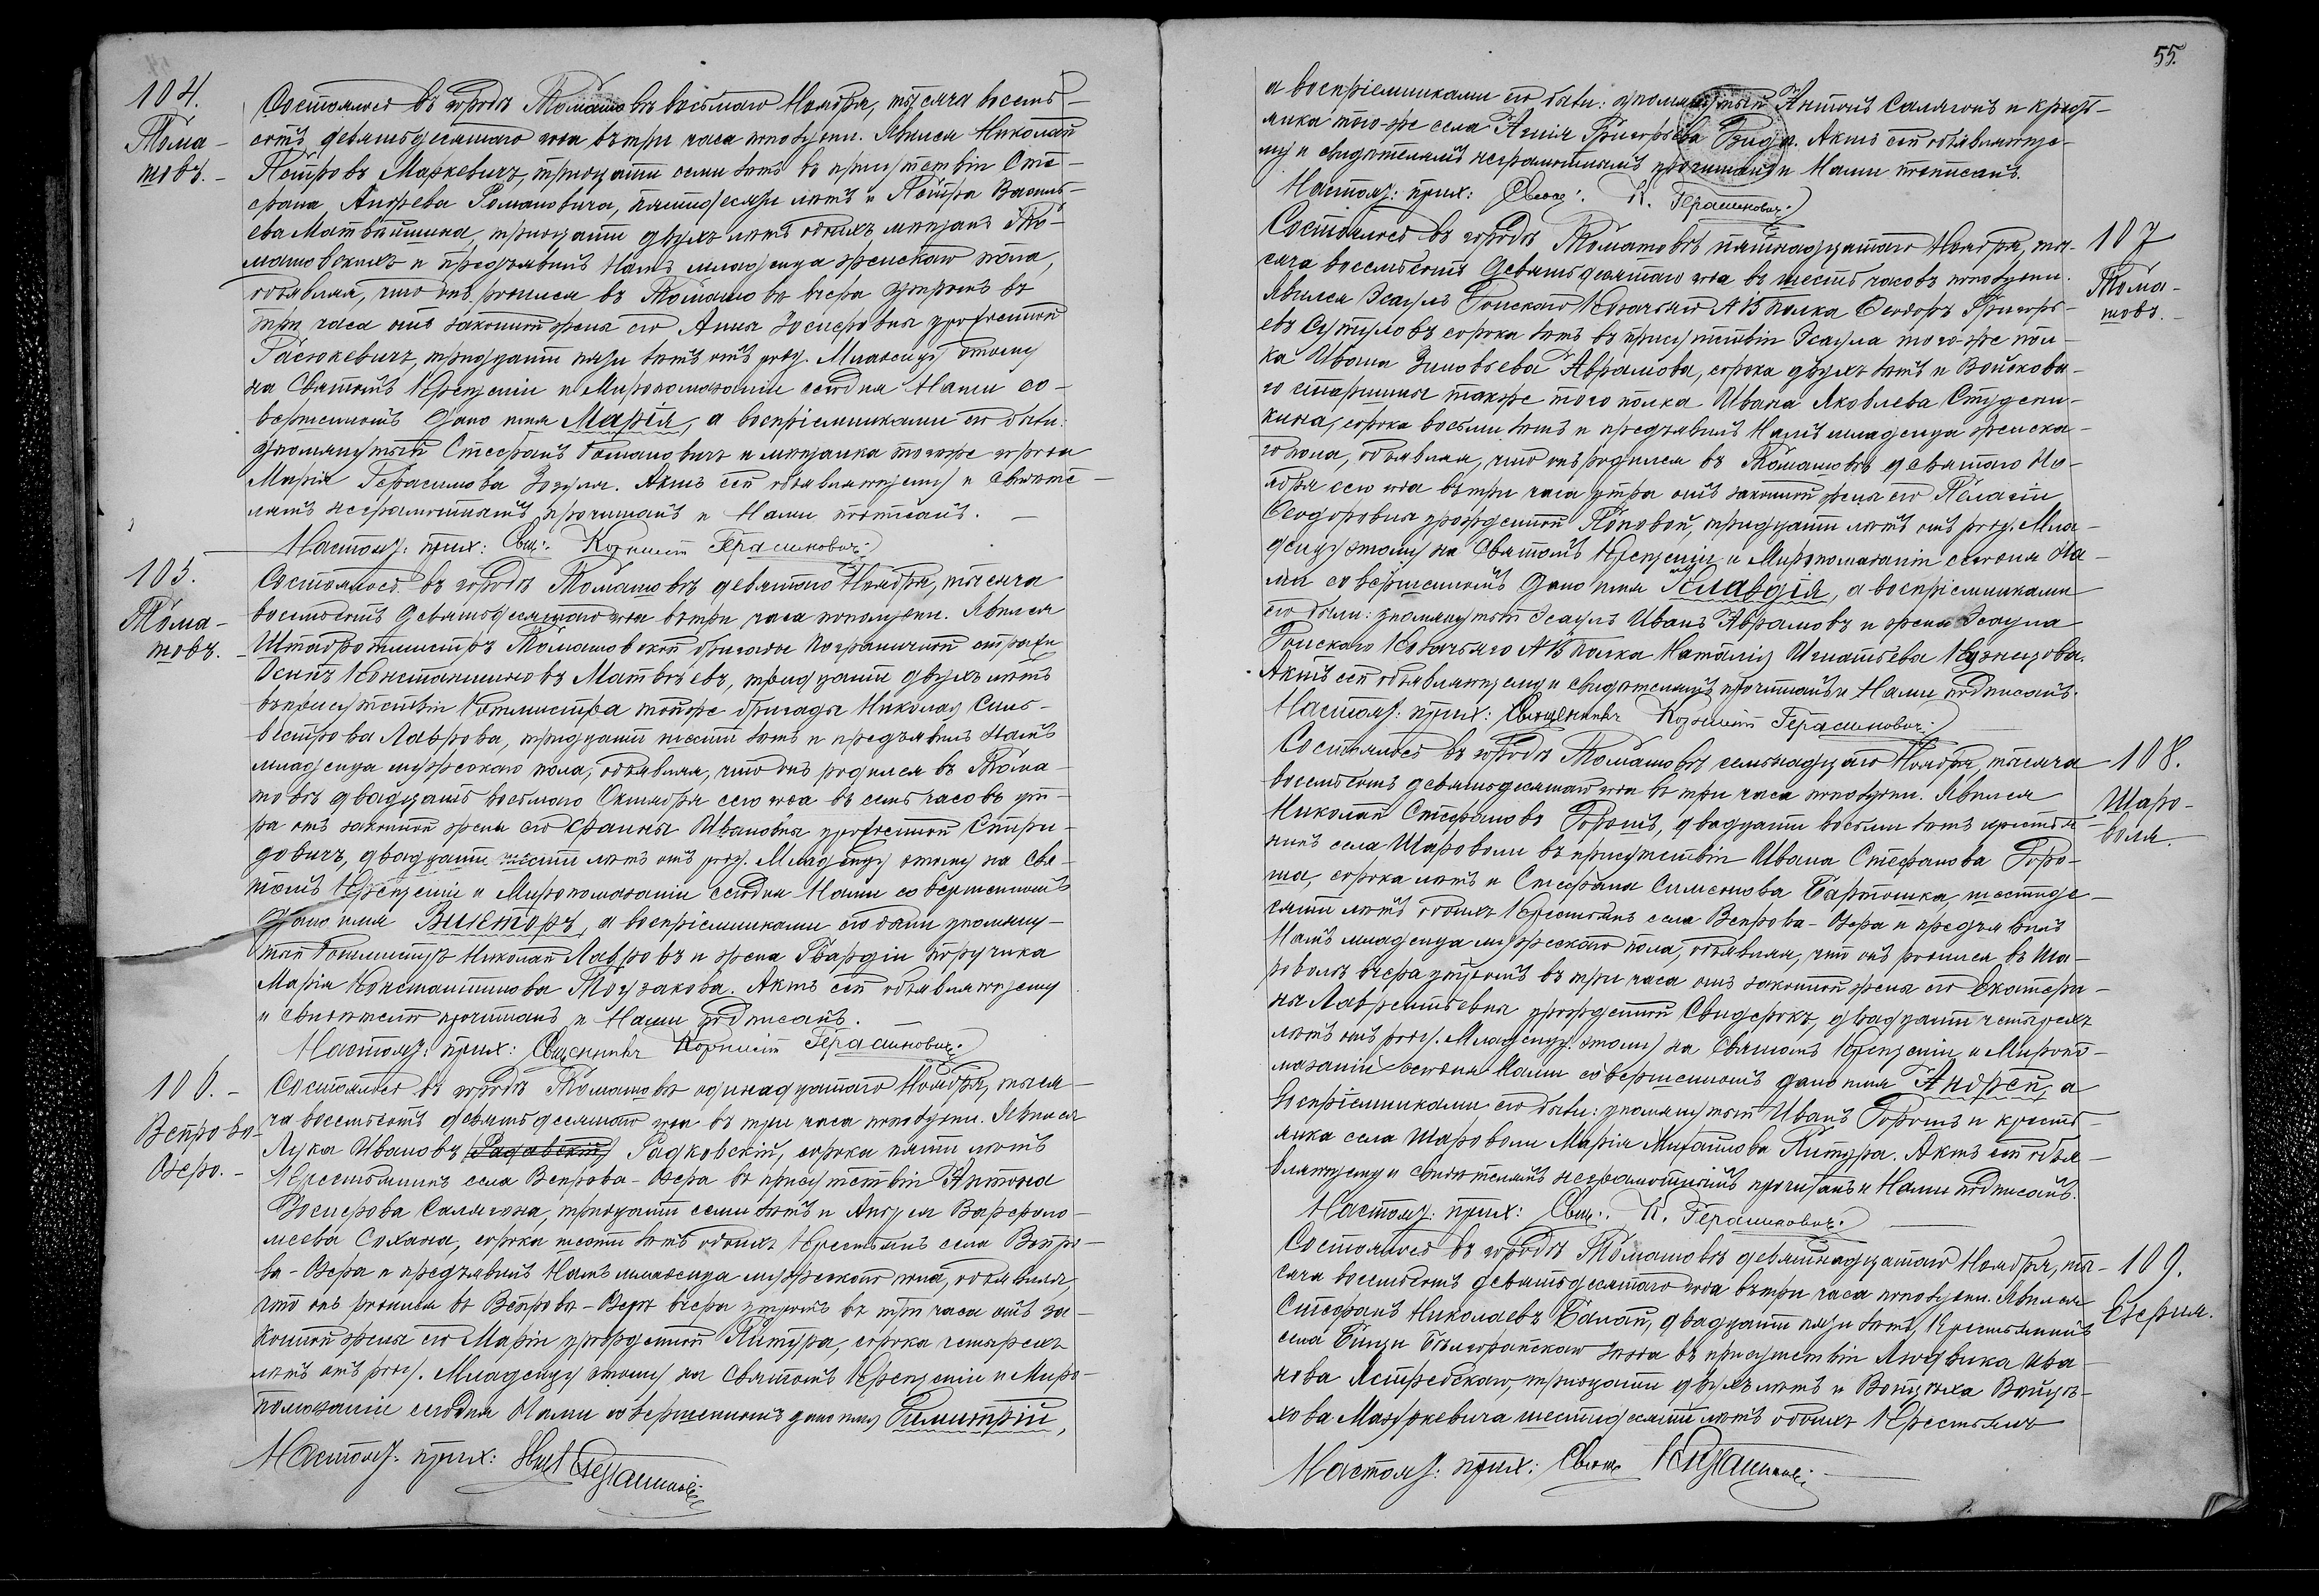 104.
Тома-
товъ.-
Состоялось въ городѣ Томашовѣ восьмаго Ноября, тысяча восемь-
сотъ девяностаго года въ три часа пополудни. Явился Николай
Петровъ Маркевичъ, тридцати семи лѣтъ въ присутствіи Сте-
фана Андреева Романовича, пятидесяти лѣтъ и Петра Василь-
ева Матвѣйшина, тридцати двухъ лѣтъ обоихъ мѣщанъ То-
машовскихъ и предъявилъ Намъ младенца женскаго пола,
объявляя, что онъ родился въ Томашовѣ вчера утромъ въ
три часа отъ законной жены его Анны Іосифовны урожденной
Гасюкевичъ, тридцати пяти лѣтъ отъ роду. Младенцу этому
на Святомъ Крещеніи и Миропомазаніи сегодня Нами со-
вершенномъ дано имя Марія, а воспріемниками его были:
упомянутый Стефанъ Романовичъ и мѣщанка тогоже города
Марія Герасимова Зозуля. Актъ сей объявляющему и свидѣте-
лямъ неграмотнымъ, прочитанъ и Нами подписанъ.
Настоят: прих: Свящ: Корнилій Герасимовичъ
105.
Тома-
товъ.
Состоялось въ городѣ Томашовѣ девятаго Ноября, тысяча
восемьсотъ девяностаго года въ три часа пополудни. Явился
Штабротмистръ Томашовской бригады Пограничной стражи
Осипъ Константиновъ Матвѣевъ, тридцати двухъ лѣтъ
въ присутствіи Ротмистра тойже бригады Николая Силь-
вестрова Лаврова, тридцати шести лѣтъ и предъявилъ Намъ
младенца мужескаго пола, объявляя, что онъ родился въ Тома-
шовѣ двадцать восьмаго Октября сего года въ семь часовъ ут-
ра отъ законной жены его Фаины Ивановны урожденной Стри-
довичъ, двадцати шести лѣтъ отъ роду. Младенцу этому на Свя-
томъ Крещеніи и Миропомазаніи сегодня Нами совершенномъ
дано имя Викторъ, а воспріемниками его были упомяну-
тый Ротмистръ Николай Лавровъ и жена Гвардіи поручика
Марія Константинова Тогузакова. Актъ сей объявляющему
и свидѣтелю прочитанъ и Нами подписанъ.
Настоят: прих: Священникъ Корнилій Герасимовичъ
106.-
Вепрово-
Озеро.-
Состоялось въ городѣ Томашовѣ одинадцатаго Ноября, тыся-
ча восемьсотъ девяностаго года въ три часа пополудни. Явился
Лука Ивановъ Радковскій, сорока пяти лѣтъ
Крестьянинъ села Вепрова-Озера въ присутствіи Антона
Іосифова Салягона, тридцати семи лѣтъ и Андрея Варфоло-
меева Сохана, сорока шести лѣтъ обоихъ Крестьянъ села Вепро-
ва-Озера и предъявилъ Намъ младенца мужескаго пола, объявляя,
что онъ родился въ Вепрово-Озерѣ вчера утромъ въ три часа отъ за-
конной жены его Маріи урожденной Питура, сорока четырехъ
лѣтъ отъ роду. Младенцу этому на Святомъ Крещеніи и Миро-
помазаніи сегодня Нами совершенномъ дано имя Димитрій,
Настоят: прих:
55.
а воспріемниками его были: упомянутый Антонъ Салягонъ и крест-
янка того-же села Агнія Григорьева Бида. Актъ сей объявляюще-
му и свидѣтелямъ неграмотнымъ прочитанъ и Нами подписанъ.
Настоят: прих: Свящ: К. Герасимовичъ
107
Тома-
товъ.-
Состоялось въ городѣ Томашовѣ пятнадцатаго Ноября, ты-
сяча восемьсотъ девяностаго года въ шесть часовъ пополудни.
Явился Эсаулъ Донскаго Козачьяго №15 полка Феодоръ Григорь-
евъ Сутуловъ сорока лѣтъ въ присутствіи Эсаула того-же пол-
ка Ивана Зиновьева Аврамова, сорока двухъ лѣтъ и Войсково-
го старшины также того полка Ивана Яковлева Студени-
кина, сорока восьми лѣтъ и предъявилъ Намъ младенца женска-
го пола, объявляя, что онъ родился въ Томашовѣ девятаго Но-
ября сего года въ три часа утра отъ законной жены его Пелагіи
Феодоровны урожденной Поповой, тридцати лѣтъ отъ роду. Мла-
денцу этому на Святомъ Крещеніи и Миропомазаніи сегодня На-
ми совершенномъ дано имя Клавдія, а воспріемниками
его были: упомянутый Эсаулъ Иванъ Аврамовъ и жена Эсаула
Донскаго Козачьяго №15 полка Наталія Игнатьева Кузнецова.
Актъ сей объявляющему и свидѣтелямъ прочитанъ и Нами подписанъ.
Настоят: прих: Священникъ Корнилій Герасимовичъ
108.
Шаро-
воля.
Состоялось въ городѣ Томашовѣ семьнадцаго Ноября, тысяча
восемьсотъ девяностаго года въ три часа пополудни. Явился
Николай Стефановъ Горошъ, двадцати восьми лѣтъ крестья-
нинъ села Шароволи въ присутствіи Ивана Стефанова Горо-
ша, сорока лѣтъ и Стефана Симеонова Бартошка, шестиде-
сяти лѣтъ обоихъ Крестьянъ села Вепрова-Озера и предъявилъ
Намъ младенца мужескаго пола, объявляя, что онъ родился въ Ша-
роволѣ вчера утромъ въ три часа отъ законной жены его Екатери-
ны Лаврентьевны урожденной Свидерокъ, двадцати четырехъ
лѣтъ отъ роду. Младенцу этому на Святомъ Крещеніи и Миропо-
мазаніи сегодня Нами совершенномъ дано имя Андрей, а
воспріемниками его были: упомянутый Иванъ Горошъ и кресть-
янка села Шароволи Марія Михайлова Питура. Актъ сей объя-
вляющему и свидѣтелямъ неграмотнымъ прочитанъ и Нами подписанъ.
Настоят: прих: Свящ: К. Герасимовичъ
109.
Езерня.
Состоялось въ городѣ Томашовѣ девятнадцатаго Ноября, ты-
сяча восемьсотъ девяностаго года въ три часа пополудни. Явился
Стефанъ Николаевъ Балай, двадцати пяти лѣтъ, Крестьянинъ
села Бищи Бѣлгорайскаго уѣзда въ присутствіи Людвика Ива-
нова Ястрембскаго, тридцати двухъ лѣтъ и Войцѣха Войцѣ-
хова Мазуркевича шестидесяти лѣтъ обоихъ Крестьянъ
Настоят: прих: Свящ